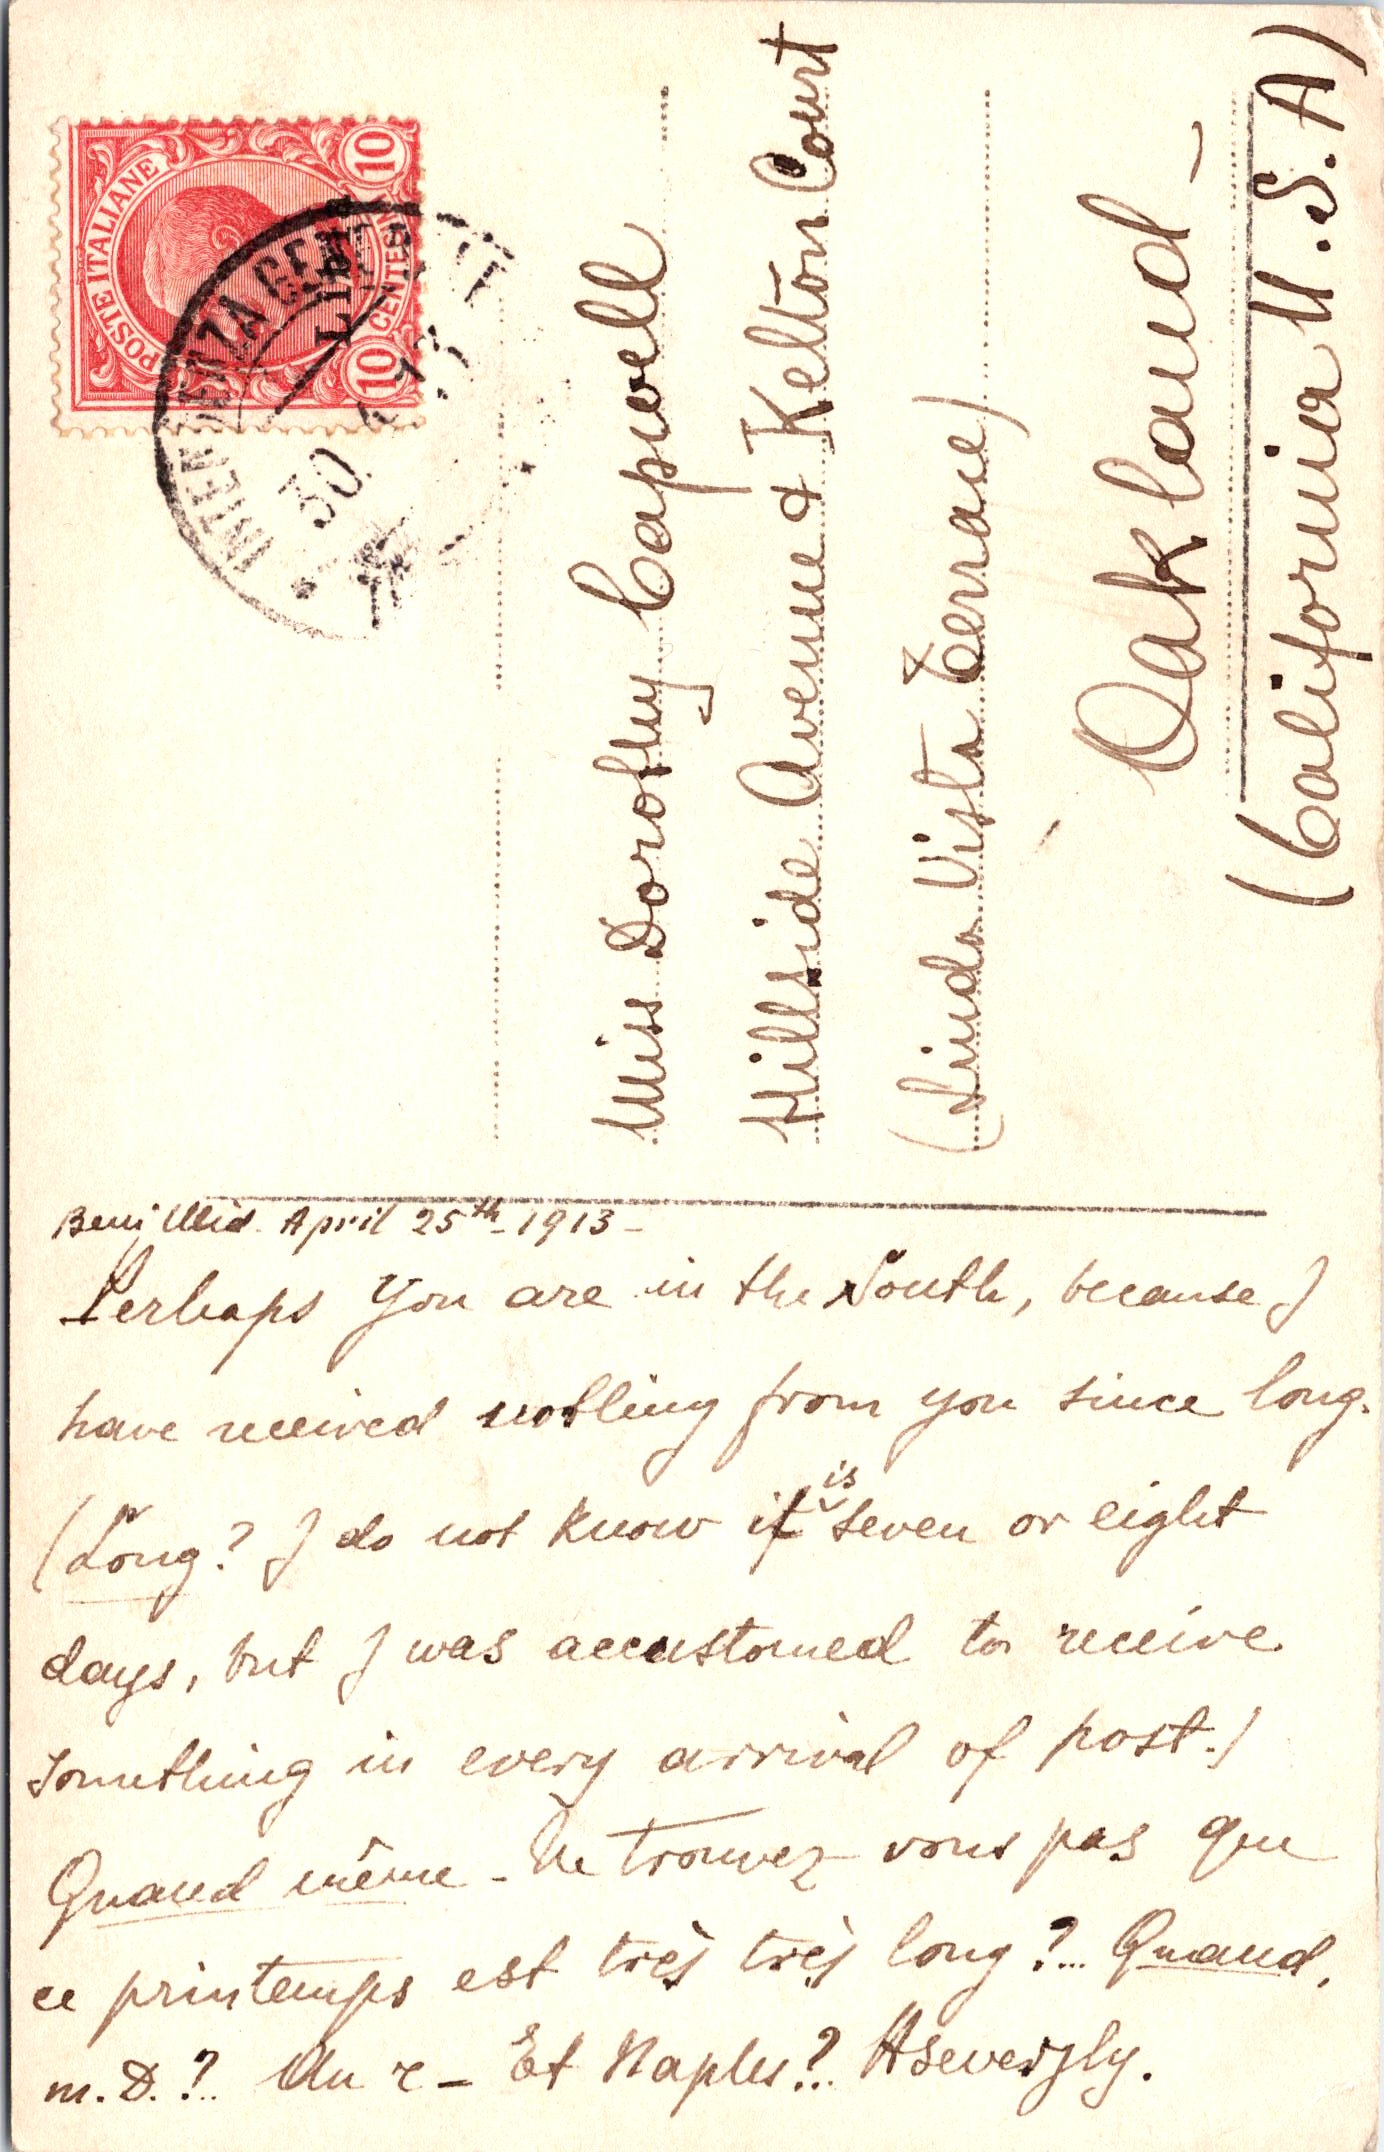 POSTE ITALIANE
10 CENTES 10
INTENDENZA GEN
LIBIA
30
Miss Dorothy Capwell
Hillside Avenue & Kelton Court
(Linda Vista Terrace)
Oakland –
(California U.S.A)
April 25th - 1913 -
Perhaps you are in the South, because I
have received nothing from you since long.
(Long? I do not know if is seven or eight
days, but I was accustomed to receive
something in every arrival of post.)
Quand même - Ne trouvez vous pas que
ce printemps est très très long?... Quand,
m. D.?.. Un r – Et Naples?..